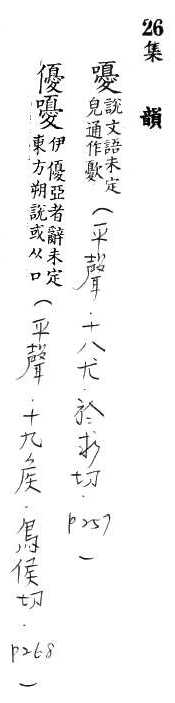 26 集 韻
嚘 說文語未定
皃通作
(平聲．十八尤．於求切．p257)
優嚘 伊優亞者辭未定
東方朔說或从口
(平聲．十九矦．烏侯切．p268)